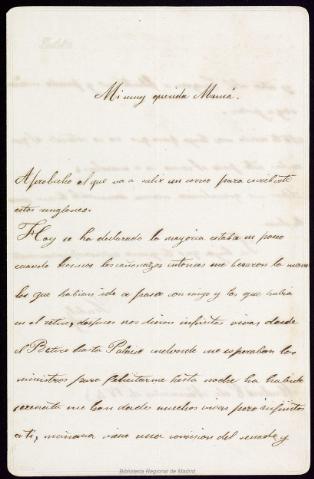 Mi muy querida Mamá.
Aprobecho el que va a salir un correo para escribirte
estos renglones.
Hoy se ha declarado la mayoria estaba en paseo
cuando los cañonazos entonces me besaron la mano
los que habian ido a paseo conmigo y los que habia
en el retiro, despues nos dieron infinitos vivas desde
el Retiro hasta Palacio endonde me esperaban los
ministros para felicitarme esta noche ha habido
serenata me han dado muchos vivas pero infinitos
a ti, mañana viene una comision del senado y
Biblioteca Regional de Madrid